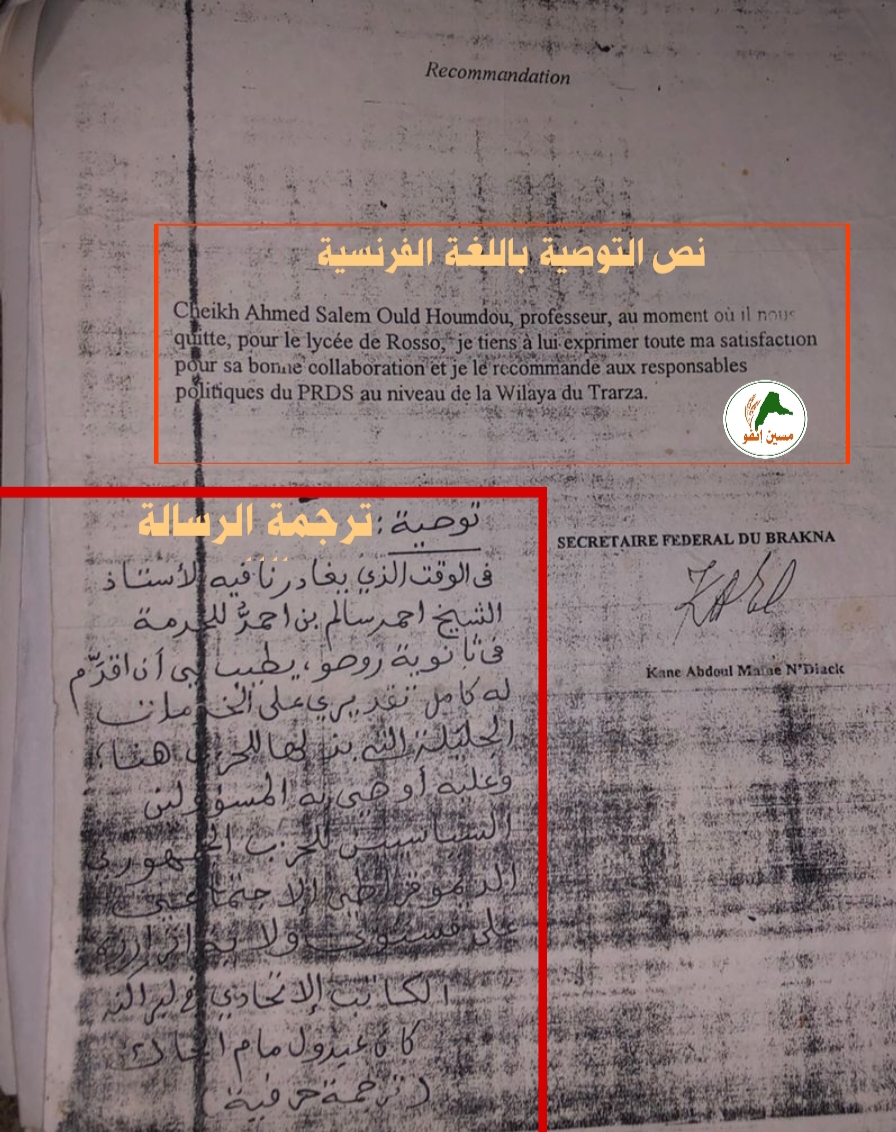 Recommandation
نص التوصية باللغة الفرنسية
Cheikh Ahmed Salem Ould Houmdou, professeur, au moment où il nous
quitte, pour le lycée de Rosso, je tiens à lui exprimer toute ma satisfaction
pour sa bonne collaboration et je le recommande aux responsables
politiques du PRDS au niveau de la Wilaya du Trarza.
مسين إنفو
SECRETAIRE FEDERAL DU BRAKNA
Kane Abdoul Mame N'Diack
ترجمة الرسالة
توصية:
فى الوقت الذي يغادرنا فيه الأستاذ
الشيخ احمد سالم بن احمدُّ للخدمة
فى ثانوية روصو، يطيب لى أن اقدّم
له كامل تقديري على الخدمات
الجليلة التى بذلها للحزب هنا،
وعليه أوصى به المسؤولين
السياسيين للحزب الجمهوري
الديموقراطى الاجتماعى
على مستوى ولاية اترارزه
الكاتب الإتحادي في لبراكنه
كان عبدول مام انجاك
(ترجمة حرفية)